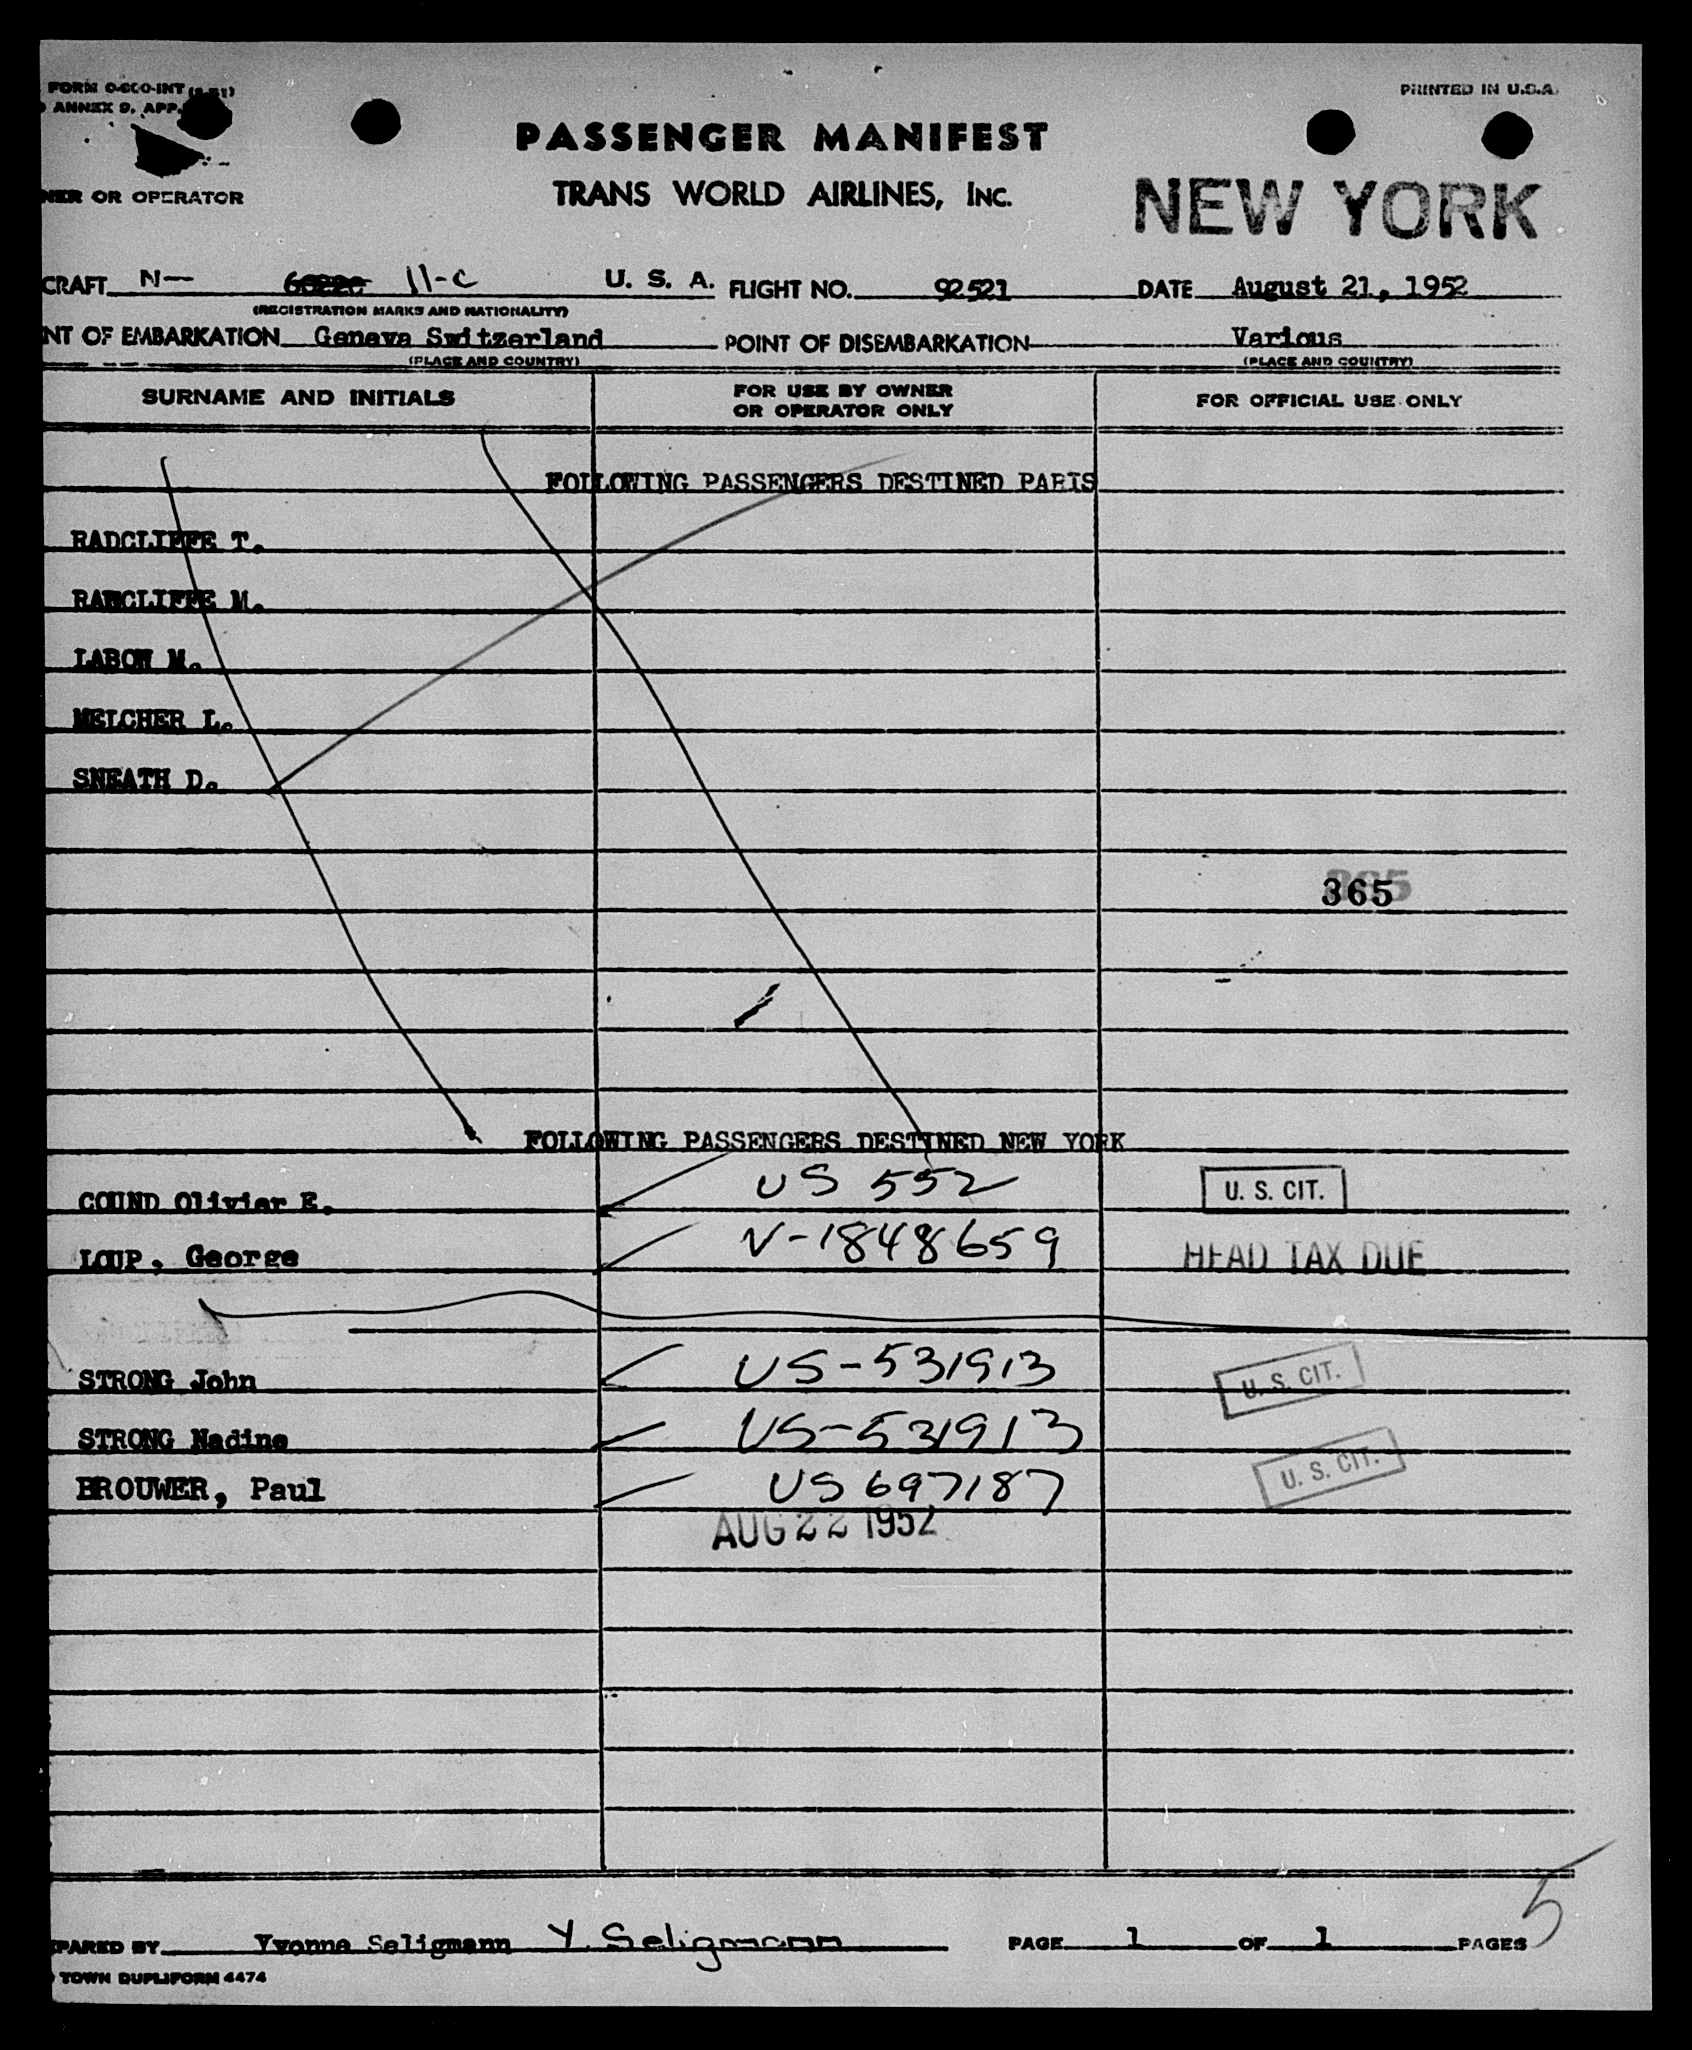 FORM O-600-INT (3-51)
ANNEX 9, APP.
PRINTED IN U.S.A.
PASSENGER MANIFEST
TRANS WORLD AIRLINES, INC.
NEW YORK
NER OR OPERATOR
CRAFT N- 11-C U. S. A. FLIGHT NO. 92521 DATE August 21, 1952
(REGISTRATION MARKS AND NATIONALITY)
NT OF EMBARKATION Geneva Switzerland POINT OF DISEMBARKATION Various
(PLACE AND COUNTRY) (PLACE AND COUNTRY)
SURNAME AND INITIALS FOR USE BY OWNER OR OPERATOR ONLY FOR OFFICIAL USE ONLY
FOLLOWING PASSENGERS DESTINED PARIS
RADCLIFFE T.
RADCLIFFE M.
LABOW M.
MELCHER L.
SNEATH D.
365
FOLLOWING PASSENGERS DESTINED NEW YORK
COUND Olivier E. US 552 U. S. CIT.
LOUP, George V-1848659 HEAD TAX DUE
STRONG John US-531913 U. S. CIT.
STRONG Nadine US-531913
BROUWER, Paul US 697187 U. S. CIT.
AUG 22 1952
5
PARED BY Yvonne Seligmann Y. Seligmann PAGE 1 OF 1 PAGES
TOWN DUPLIFORM 4474